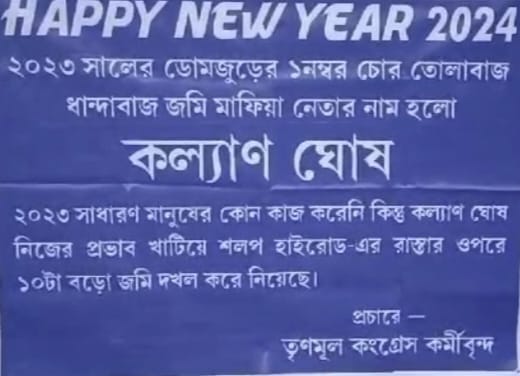 HAPPY NEW YEAR 2024
২০২৩ সালের ডোমজুড়ের ১নম্বর চোর তোলাবাজ
ধান্দাবাজ জমি মাফিয়া নেতার নাম হলো
কল্যাণ ঘোষ
২০২৩ সাধারণ মানুষের কোন কাজ করেনি কিন্তু কল্যাণ ঘোষ
নিজের প্রভাব খাটিয়ে শলপ হাইরোড-এর রাস্তার ওপরে
১০টা বড়ো জমি দখল করে নিয়েছে।
প্রচারে —
তৃণমূল কংগ্রেস কর্মীবৃন্দ